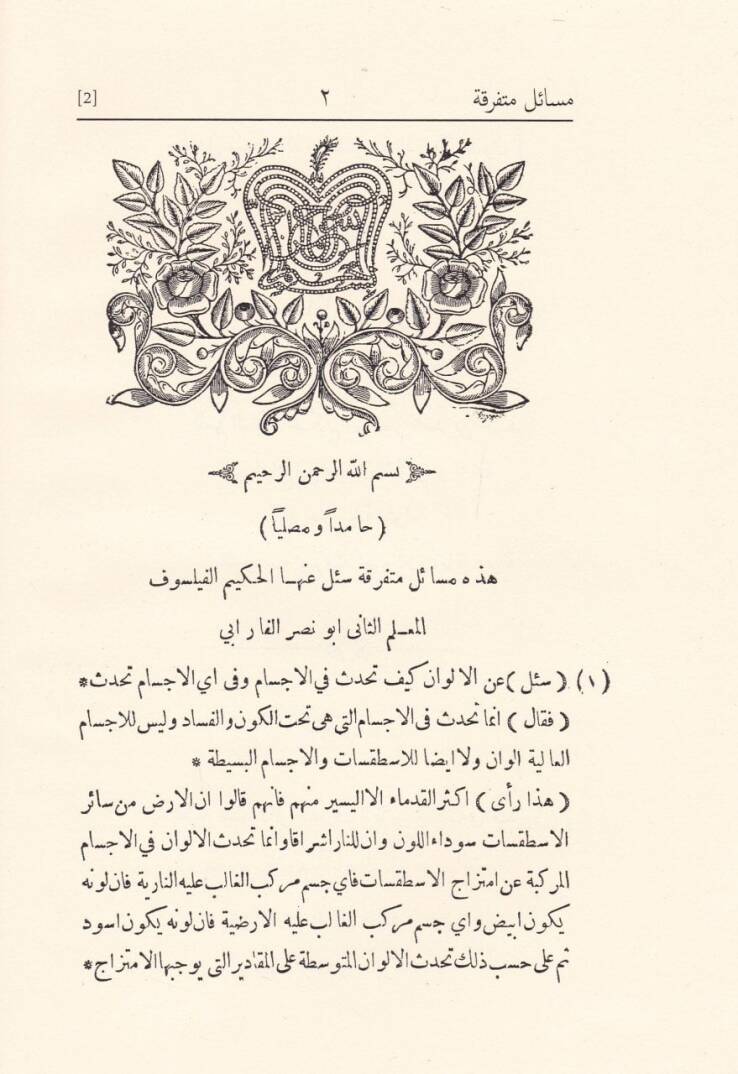 مسائل متفرقة ٢ [2]
بسم الله الرحمن الرحيم
(حامداً ومصلياً)
هذه مسائل متفرقة سئل عنها الحكيم الفيلسوف
المعلم الثانى ابو نصر الفارابي
(١) (سئل) عن الالوان كيف تحدث في الاجسام وفى اي الاجسام تحدث*
(فقال) انما تحدث فى الاجسام التى هى تحت الكون والفساد وليس للاجسام
العالية الوان ولا ايضا للاسطقسات والاجسام البسيطة *
(هذا رأى) اكثر القدماء الا اليسير منهم فانهم قالوا ان الارض من سائر
الاسطقسات سوداء اللون وان للنار اشراقا وانما تحدث الالوان في الاجسام
المركبة عن امتزاج الاسطقسات فاي جسم مركب الغالب عليه النارية فان لونه
يكون ابيض واي جسم مركب الغالب عليه الارضية فان لونه يكون اسود
ثم على حسب ذلك تحدث الالوان المتوسطة على المقادير التى يوجبها الامتزاج*